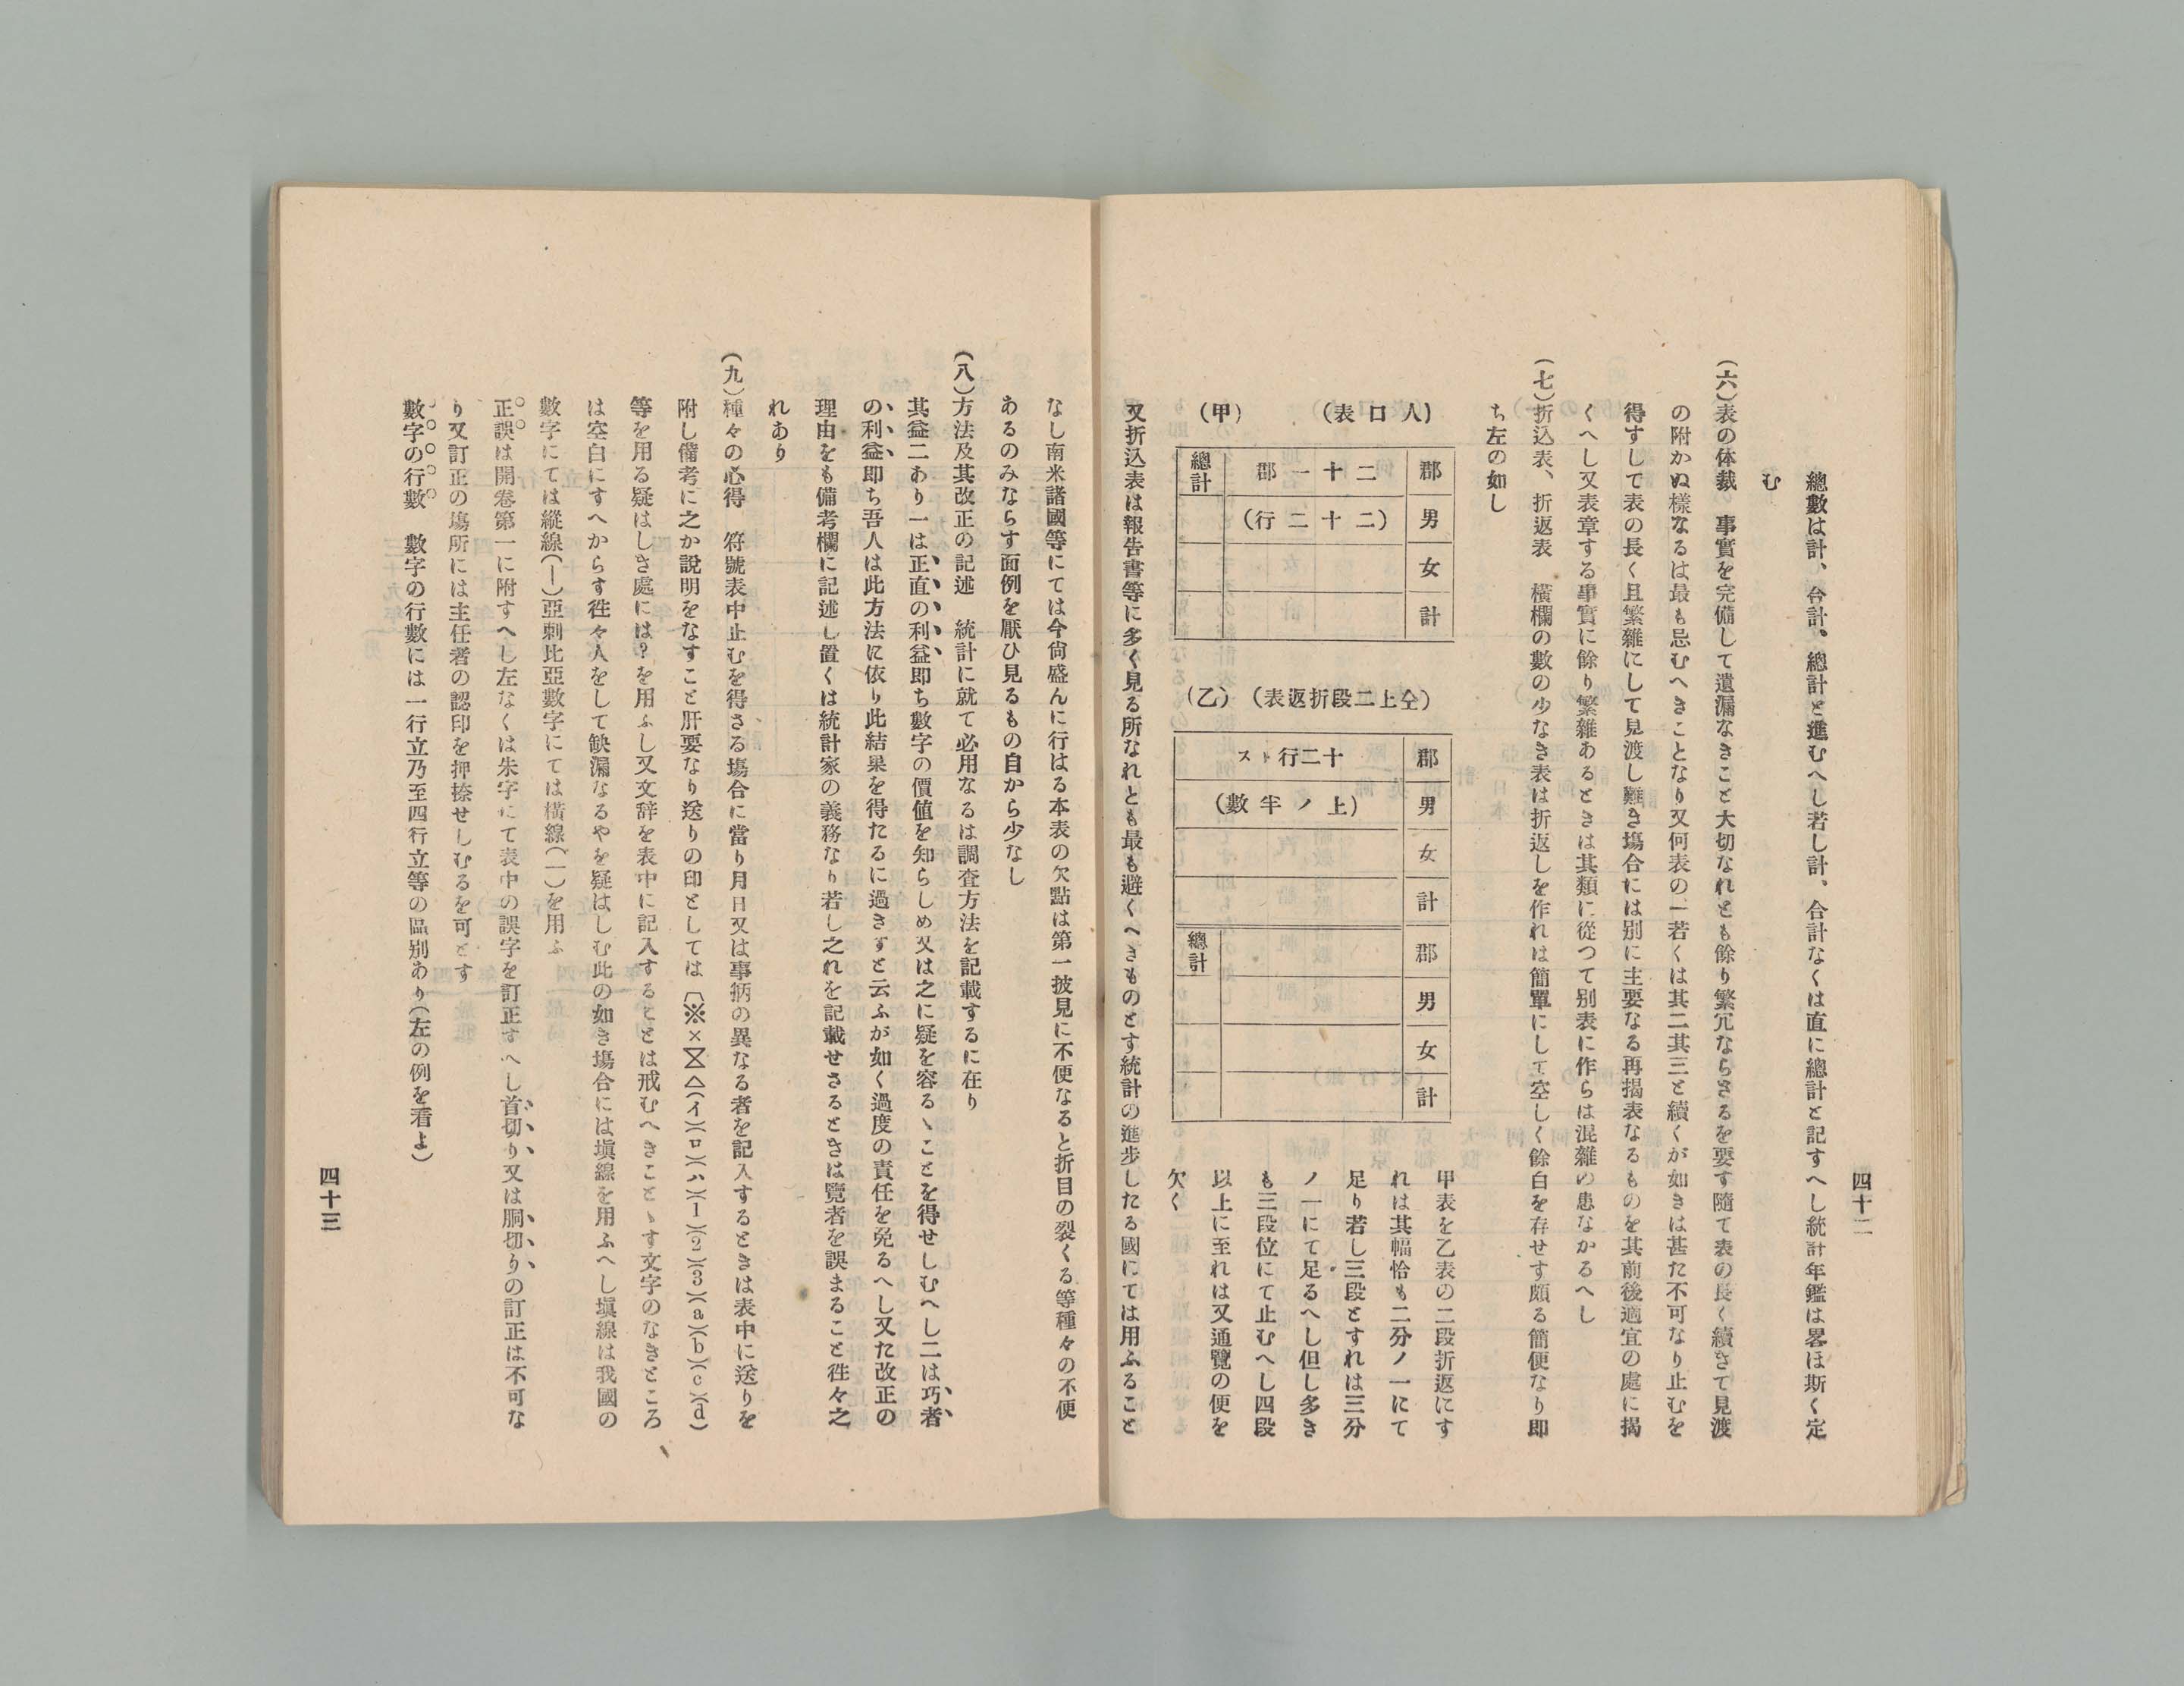 四十二
總數は計、合計、總計と進むへし若し計、合計なくは直に總計と記すへし統計年鑑は畧ほ斯く定
む
(六)表の体裁　事實を完備して遺漏なきこと大切なれとも餘り繁冗ならさるを要す隨て表の長く續きて見渡
の附かぬ樣なるは最も忌むへきことなり又何表の一若くは其二其三と續くが如きは甚た不可なり止むを
得すして表の長く且繁雜にして見渡し難き塲合には別に主要なる再揭表なるものを其前後適宜の處に揭
くへし又表章する事實に餘り繁雜あるときは其類に從つて別表に作らは混雜の患なかるへし
(七)折込表、折返表　横欄の數の少なき表は折返しを作れは簡單にして空しく餘白を存せす頗る簡便なり即
ち左の如し
(人口表)　(甲)
郡　男　女　計
二十一郡
(二十二行)
總計
(仝上二段折返表)　(乙)
郡　男　女　計　郡　男　女　計
十二行トス
(上ノ半數)
總計
甲表を乙表の二段折返にす
れは其幅恰も二分ノ一にて
足り若し三段とすれは三分
ノ一にて足るへし但し多き
も三段位にて止むへし四段
以上に至れは又通覽の便を
欠く
又折込表は報告書等に多く見る所なれとも最も避くへきものとす統計の進步したる國にては用ふること
なし南米諸國等にては今尙盛んに行はる本表の欠點は第一披見に不便なると折目の裂くる等種々の不便
あるのみならす面例を厭ひ見るもの自から少なし
(八)方法及其改正の記述　統計に就て必用なるは調査方法を記載するに在り
其益二あり一は正直の利益即ち數字の價値を知らしめ又は之に疑を容るヽことを得せしむへし二は巧者
の利益即ち吾人は此方法に依り此結果を得たるに過きすと云ふが如く過度の責任を免るへし又た改正の
理由をも備考欄に記述し置くは統計家の義務なり若し之れを記載せさるときは覽者を誤まること徃々之
れあり
(九)種々の心得　符號表中止むを得さる塲合に當り月日又は事柄の異なる者を記入するときは表中に送りを
附し備考に之か說明をなすこと肝要なり送りの印としては〔※×⧖△(イ)(ロ)(ハ)(1)(2)(3)(a)(b)(c)(d)
等を用る疑はしき處には?を用ふし又文辞を表中に記入するとは戒むへきことヽす文字のなきところ
は空白にすへからす徃々人をして缺漏なるやを疑はしむ此の如き塲合には塡線を用ふへし塡線は我國の
數字にては縱線(|)亞剌比亞數字にては橫線(―)を用ふ
正誤は開卷第一に附すへし左なくは朱字にて表中の誤字を訂正すへし首切り又は胴切りの訂正は不可な
り又訂正の塲所には主任者の認印を押捺せしむるを可とす
數字の行數　數字の行數には一行立乃至四行立等の區别あり(左の例を看よ)
四十三